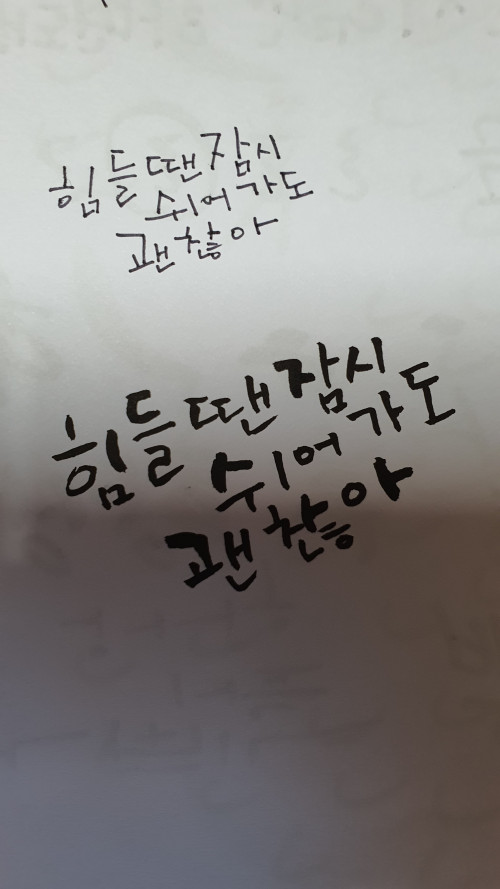 힘들땐잠시
쉬어가도
괜찮아
힘들땐잠시
쉬어가도
괜찮아